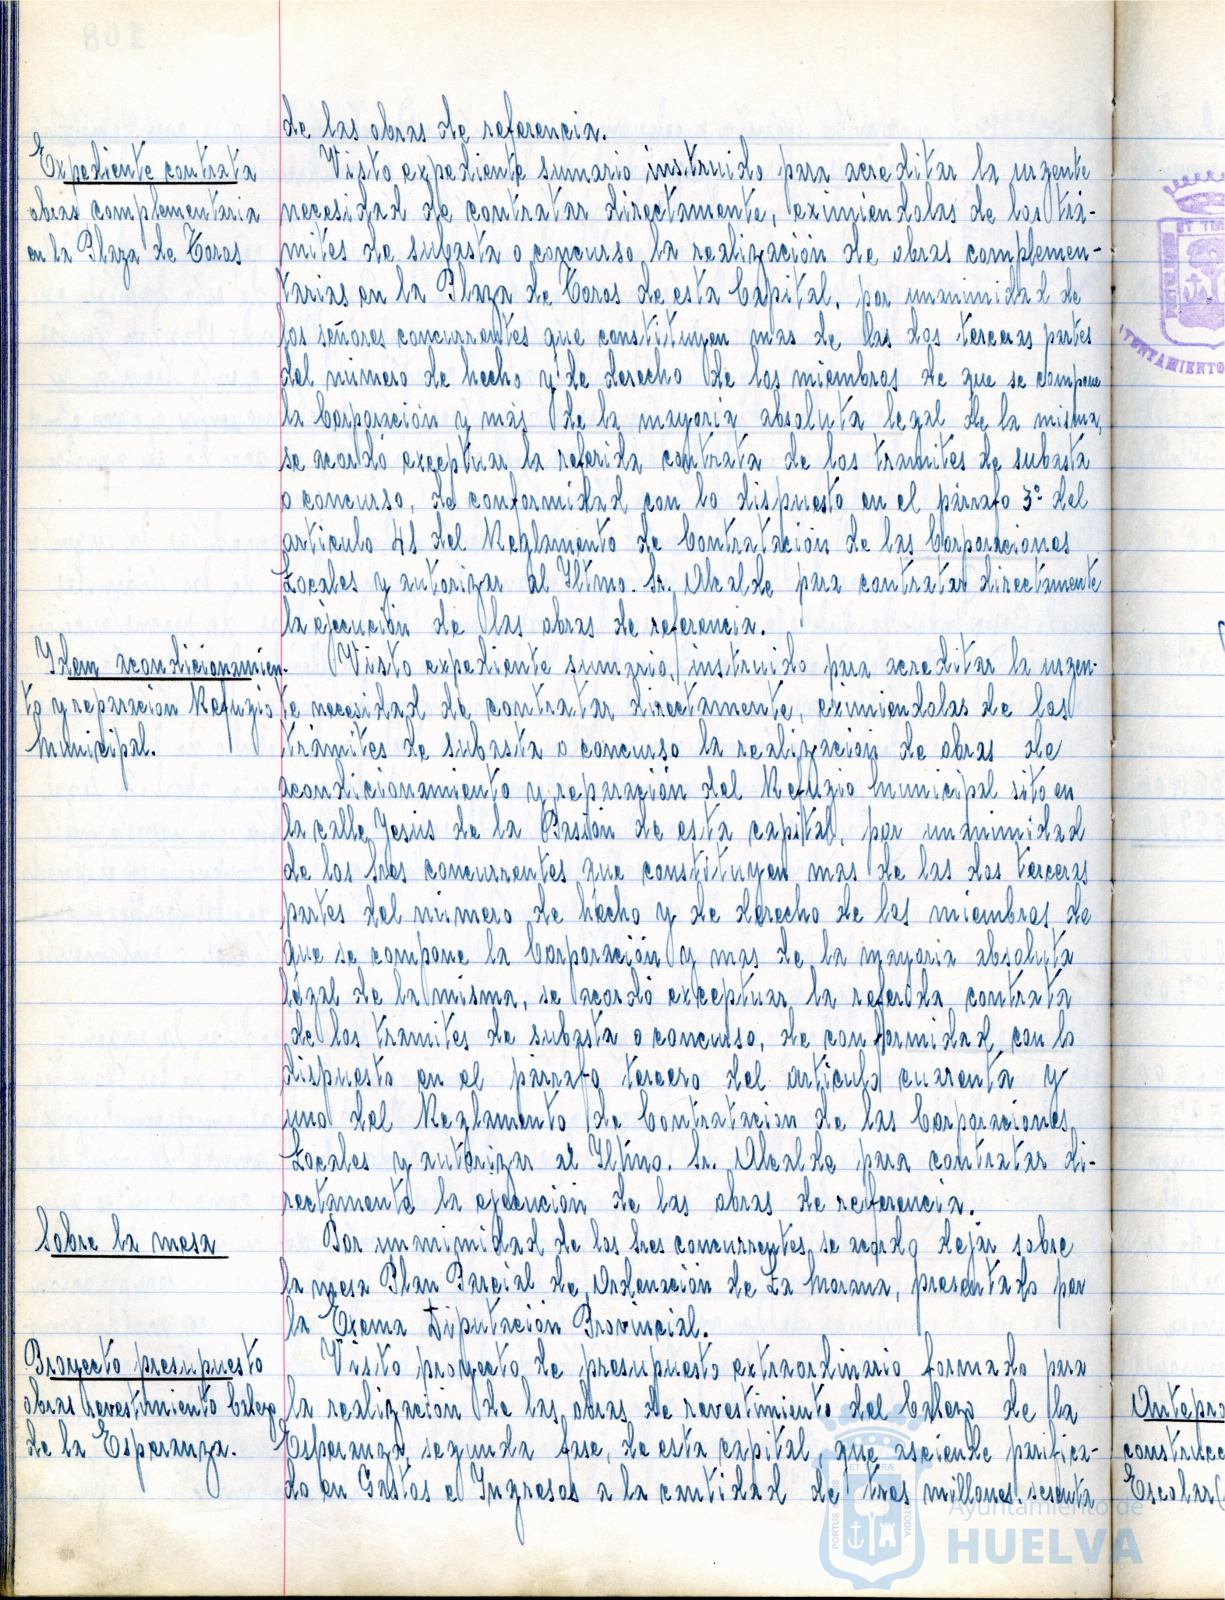 de las obras de referencia.
Expediente contrata
obras complementaria
en la Plaza de Toros
Visto expediente sumario instruido para acreditar la urgente
necesidad de contratar directamente, eximiendolas de los trá-
mites de subasta o concurso la realización de obras complemen-
tarias en la Plaza de Toros de esta Capital, por unanimidad de
los señores concurrentes que constituyen mas de las dos terceras partes
del número de hecho y de derecho de los miembros de que se compone
la Corporación y más de la mayoria absoluta legal de la misma,
se acordó exceptuar la referida contrata de los tramites de subasta
o concurso, de conformidad con lo dispuesto en el párrafo 3º del
articulo 41 del Reglamento de Contratación de las Corporaciones
Locales y autorizar al Iltmo. Sr. Alcalde para contratar directamente
la ejecución de las obras de referencia.
Idem acondicionamien-
to y reparación Refugio
Municipal.
Visto expediente sumario, instruido para acreditar la urgen-
te necesidad de contratar directamente, eximiendolas de los
trámites de subasta o concurso la realización de obras de
acondicionamiento y reparación del Refugio Municipal sito en
la calle Jesús de la Pasión de esta capital, por unanimidad
de los Sres concurrentes que constituyen mas de las dos terceras
partes del número de hecho y de derecho de los miembros de
que se compone la Corporación y mas de la mayoria absoluta
legal de la misma, se acordó exceptuar la referida contrata
de los tramites de subasta o concurso, de conformidad con lo
dispuesto en el párrafo tercero del articulo cuarenta y
uno del Reglamento de Contratacion de las Corporaciones
Locales y autorizar al Iltmo. Sr. Alcalde para contratar di-
rectamente la ejecución de las obras de referencia.
Sobre la mesa
Por unanimidad de los Sres concurrentes se acordo dejar sobre
la mesa Plan Parcial de Ordenación de La Morana, presentado por
la Excma Diputación Provincial.
Proyecto presupuesto
obras revestimiento Cabezo
de la Esperanza.
Visto proyecto de presupuesto extraordinario formado para
la realización de las obras de revestimiento del Cabezo de la
Esperanza, segunda fase, de esta capital, que asciende parifica-
do en Gastos e Ingresos a la cantidad de tres millones sesenta
Antepro
construcc
Escolar
Ayuntamiento de
HUELVA